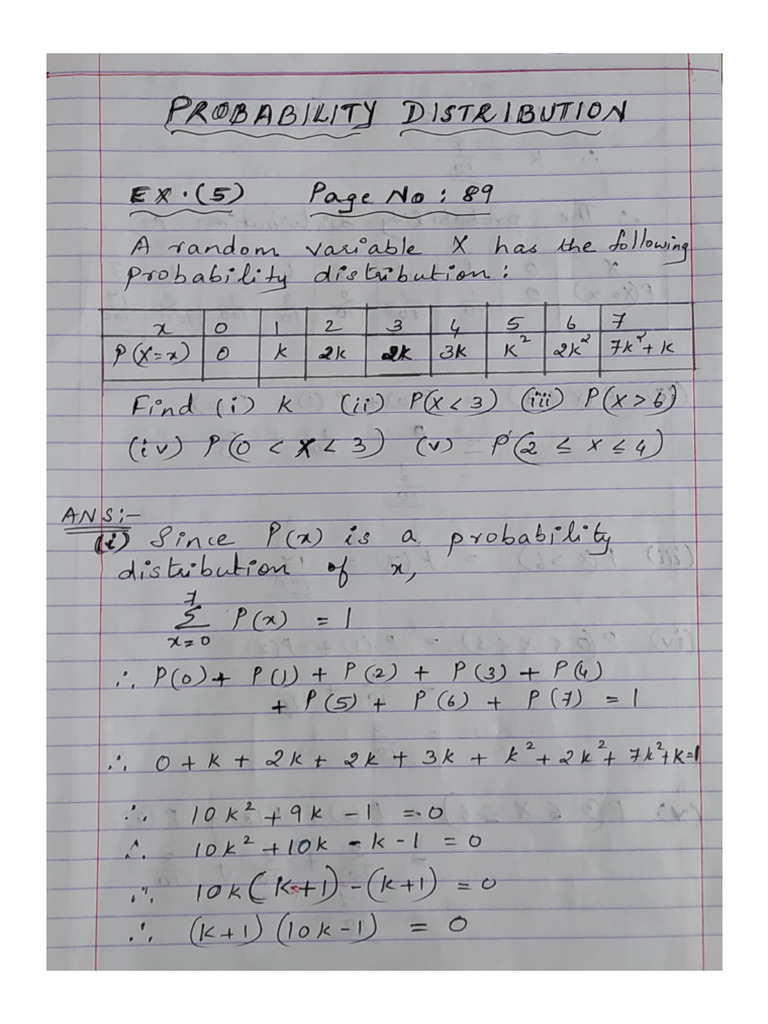 PROBABILITY DISTRIBUTION
EX.(5) Page No : 89
A random variable X has the following
probability distribution :
x 0 1 2 3 4 5 6 7
P(X=x) 0 k 2k 2k 3k k² 2k² 7k²+k
Find (i) k (ii) P(X<3) (iii) P(X>6)
(iv) P(0 < X < 3) (v) P(2 ≤ x ≤ 4)
ANS:-
(i) Since P(x) is a probability
distribution of x,
7
Σ P(x) = 1
x=0
∴ P(0)+ P(1) + P(2) + P(3) + P(4)
+ P(5) + P(6) + P(7) = 1
∴ 0 + k + 2k + 2k + 3k + k² + 2k² + 7k²+k=1
∴ 10k² + 9k - 1 = 0
∴ 10k² + 10k - k - 1 = 0
∴ 10k(k+1) - (k+1) = 0
∴ (k+1) (10k-1) = 0